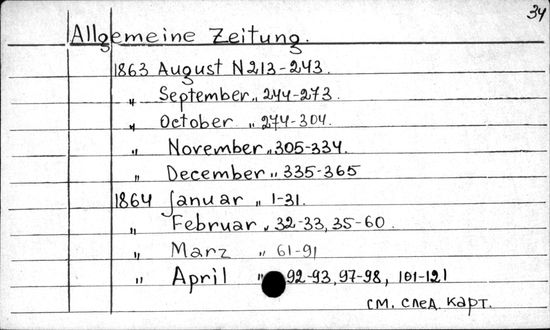 34
Allgemeine Zeitung.
1863 August N 213-243.
" September " 244-273.
" October " 274-304.
" November " 305-334.
" December " 335-365
1864 Januar " 1-31.
" Februar " 32-33, 35-60.
" Marz " 61-91
" April " 92-93, 97-98, 101-121
см. след. карт.